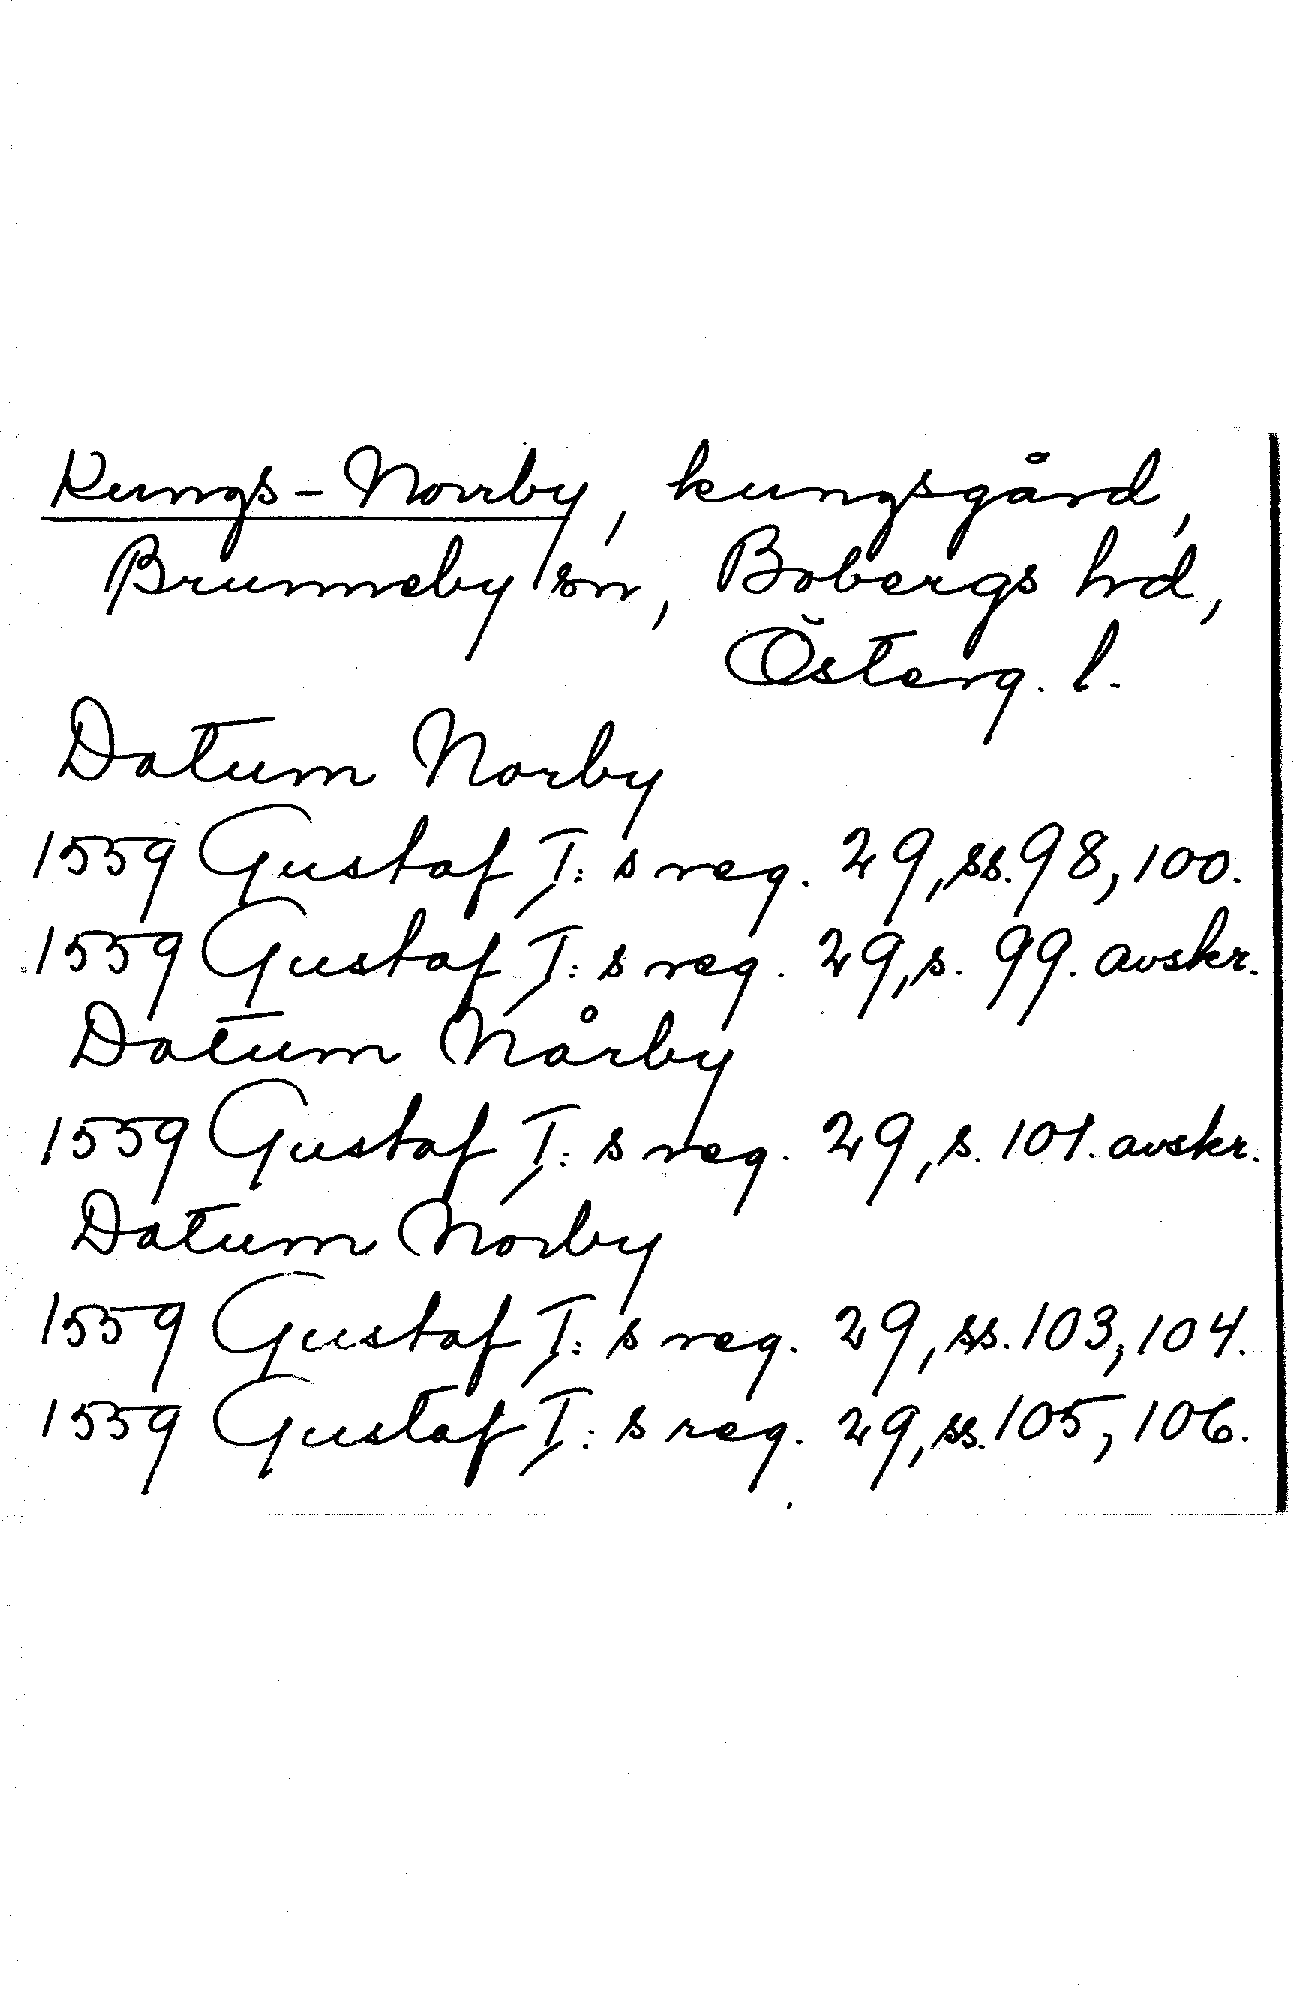 Kungs-Norrby, kungsgård,
Brunneby sn, Bobergs hd,
Österg. l.
Datum Norby
1559 Gustaf I:s reg. 29, ss. 98, 100.
1559 Gustaf I:s reg. 29, s. 99. avskr.
Datum Nårby
1559 Gustaf I:s reg. 29, s. 101. avskr.
Datum Norby
1559 Gustaf I:s reg. 29, ss. 103, 104.
1559 Gustaf I:s reg. 29, ss. 105, 106.